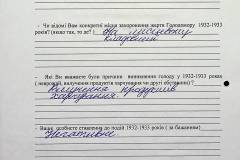 - Чи відомі Вам конкретні місця захоронення жертв Голодомору 1932-1933
років(якщо так, то де? ) На сільському
кладовищі
- Які Ви вважаєте були причини виникнення голоду у 1932-1933 роках
( неврожай, вилучення продуктів харчування чи другі обставини? )
Вилучення продуктів
харчування.
- Ваше особисте ставлення до подій 1932-1933 років ( за бажанням)
Негативне.